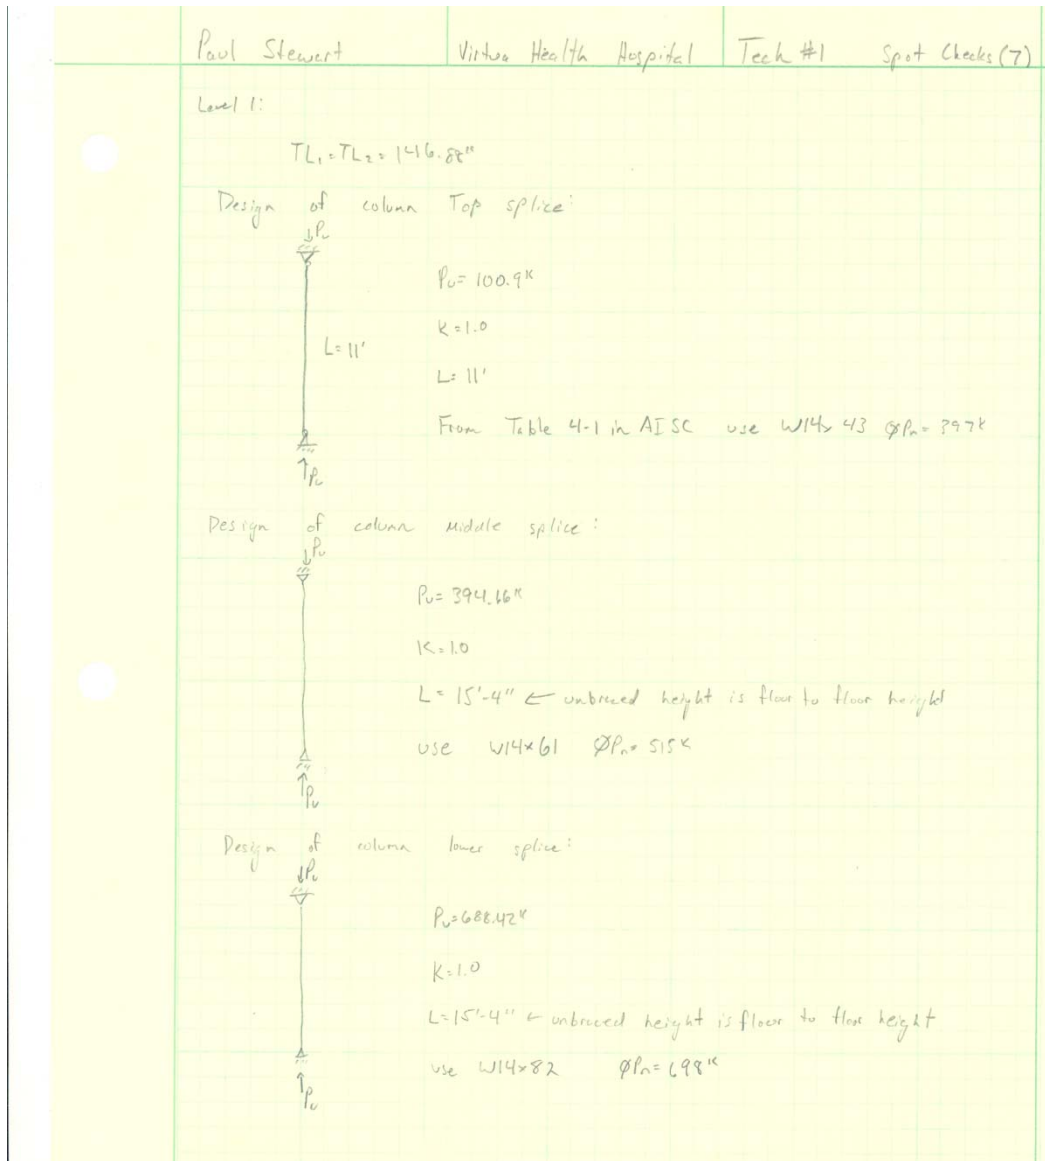 Paul Stewart Virtua Health Hospital Tech #1 Spot Checks (7)
Level 1:
TL₁ = TL₂ = 146.88ᵏ
Design of column Top splice:
↓Pu
Pu = 100.9ᵏ
K = 1.0
L = 11'
L = 11'
From Table 4-1 in AISC use W14x43 ØPn = 397ᵏ
↑Pu
Design of column middle splice:
↓Pu
Pu = 394.66ᵏ
K = 1.0
L = 15'-4" ← unbraced height is floor to floor height
use W14x61 ØPn = 515ᵏ
↑Pu
Design of column lower splice:
↓Pu
Pu = 688.42ᵏ
K = 1.0
L = 15'-4" ← unbraced height is floor to floor height
use W14x82 ØPn = 698ᵏ
↑Pu